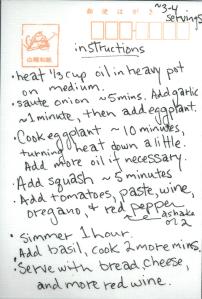 郵便はがき
~3-4
servings
instructions
• heat 1/3 cup oil in heavy pot
on medium.
• saute onion ~5mins. Add garlic
~1minute, then add eggplant.
• Cook eggplant ~10 minutes,
turning heat down a little.
Add more oil if necessary.
• Add squash ~5 minutes
• Add tomatoes, paste, wine,
oregano, & red pepper
a shake
or 2
• simmer 1 hour.
• Add basil, cook 2 more mins.
• Serve with bread, cheese,
and more red wine.